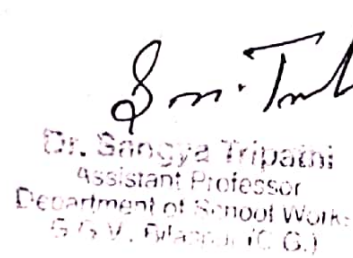 Dr. Sangya Tripathi
Assistant Professor
Department of School Work
G.G.V., (C.G.)